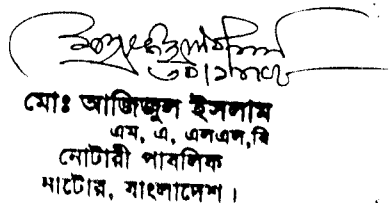 মোঃ আজিজুল ইসলাম
এম, এ, এলএল,বি
নোটারী পাবলিক
নাটোর, বাংলাদেশ।